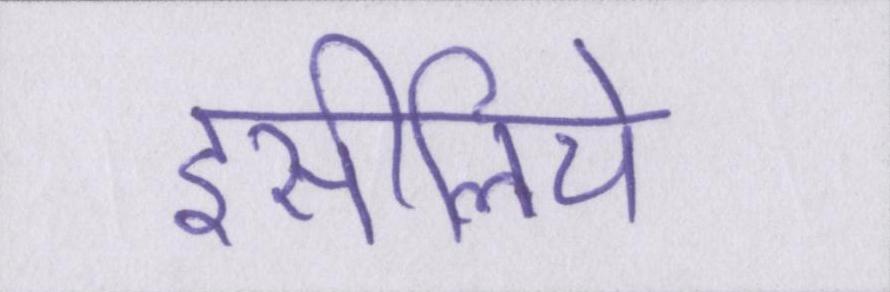 इसीलिये